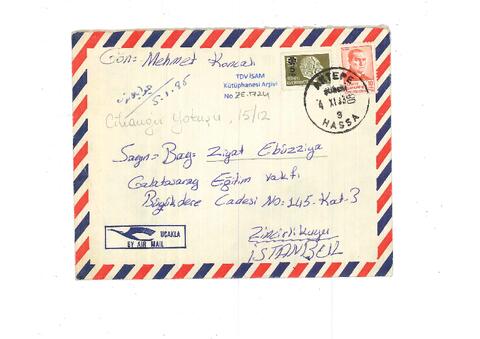 Gön: Mehmet
TDV İSAM
Kütüphanesi Arşivi
No ZE.1724
5.1.86
Cihangir Yokuşu, 15/12
AKTEPE
HASSA
Sayın= Bay= Ziyat Ebüzziya
Galatasaray Eğitim vakfı
Büyükdere Cadesi No: 145. Kat-3
Zincirlikuyu
İSTANBUL
UÇAKLA
BY AIR MAIL